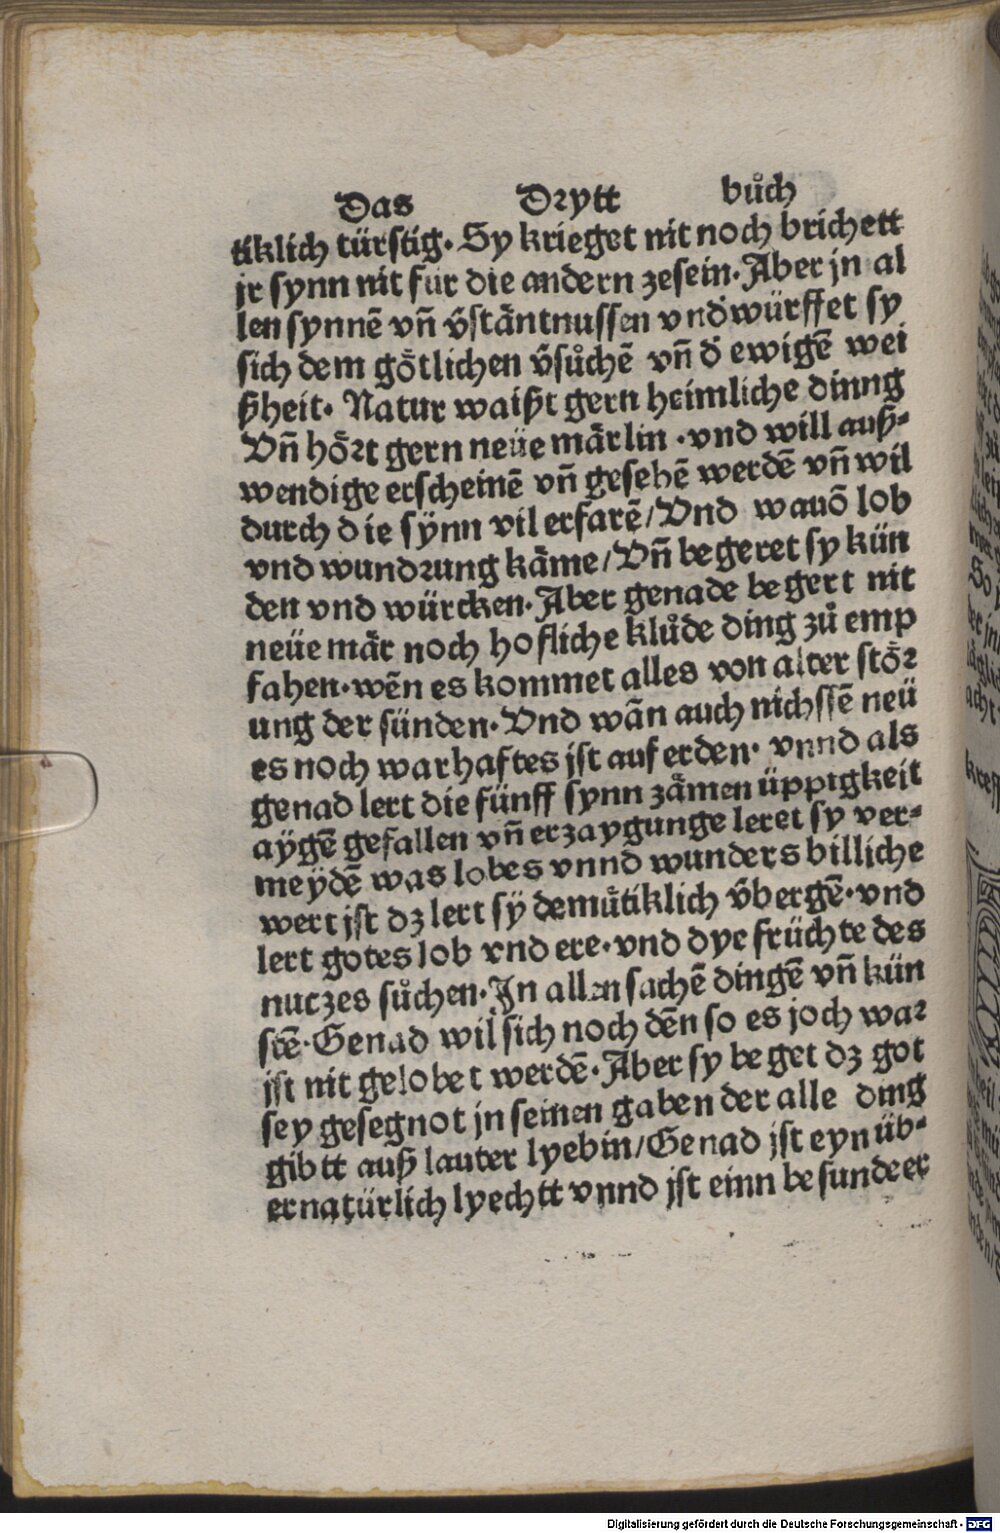 Das Drytt bůch
tiklich türstig. Sy krieget nit noch brichett
jr synn nit für die andern zesein. Aber jn al
len synnē vñ v̄stäntnussen vnd würffet sy
sich dem götlichen v̄sůchē vñ d̄ ewigē wei
ßheit. Natur waißt gern heimliche dinng
Vñ hört gern neüe märlin . vnd will auß⸗
wendige erscheinē vñ gesehē werdē vñ wil
durch die sÿnn vil erfarē / Vnd wauō lob
vnd wundrung käme / Vñ begeret sy kün
den vnd würcken. Aber genade begert nit
neüe mär noch hofliche klůde ding zů emp
fahen. wēn es kommet alles von alter stör
ung der sünden. Vnd wān auch nichssē neü
es noch warhaftes jst auf erden. vnnd als
genad lert die fünff synn zämen üppigkeit
aÿgē gefallen vñ erzaygunge leret sy ver⸗
meÿdē was lobes vnnd wunders billiche
wert jst dz lert sÿ demütiklich v̄bergē. vnd
lert gotes lob vnd ere. vnd dye früchte des
nutzes sůchen. Jn allen sachē dingē vñ kün
stē. Genad wil sich noch dēn so es joch war
jst nit gelobet werdē. Aber sy beget dz got
sey gesegnot jn seinen gaben der alle ding
gibtt auß lauter lyebin / Genad jst eyn üb⸗
ernatürlich lyechtt vnnd jst einn besundeer
Digitalisierung gefördert durch die Deutsche Forschungsgemeinschaft - DFG